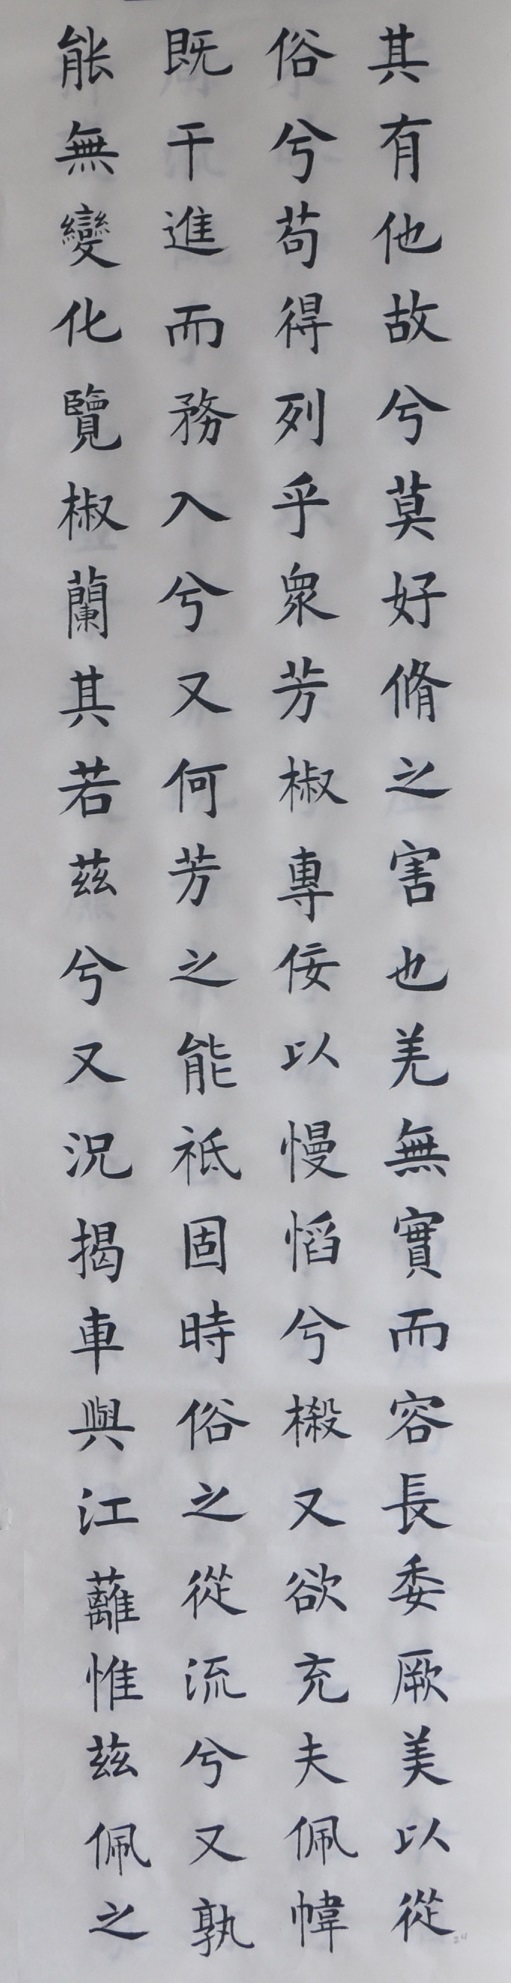 其有他故兮莫好脩之害也羌無實而容長委厥美以從
俗兮苟得列乎衆芳椒專佞以慢慆兮樧又欲充夫佩幃
既干進而務入兮又何芳之能祗固時俗之從流兮又孰
能無變化覽椒蘭其若茲兮又況揭車與江蘺惟茲佩之